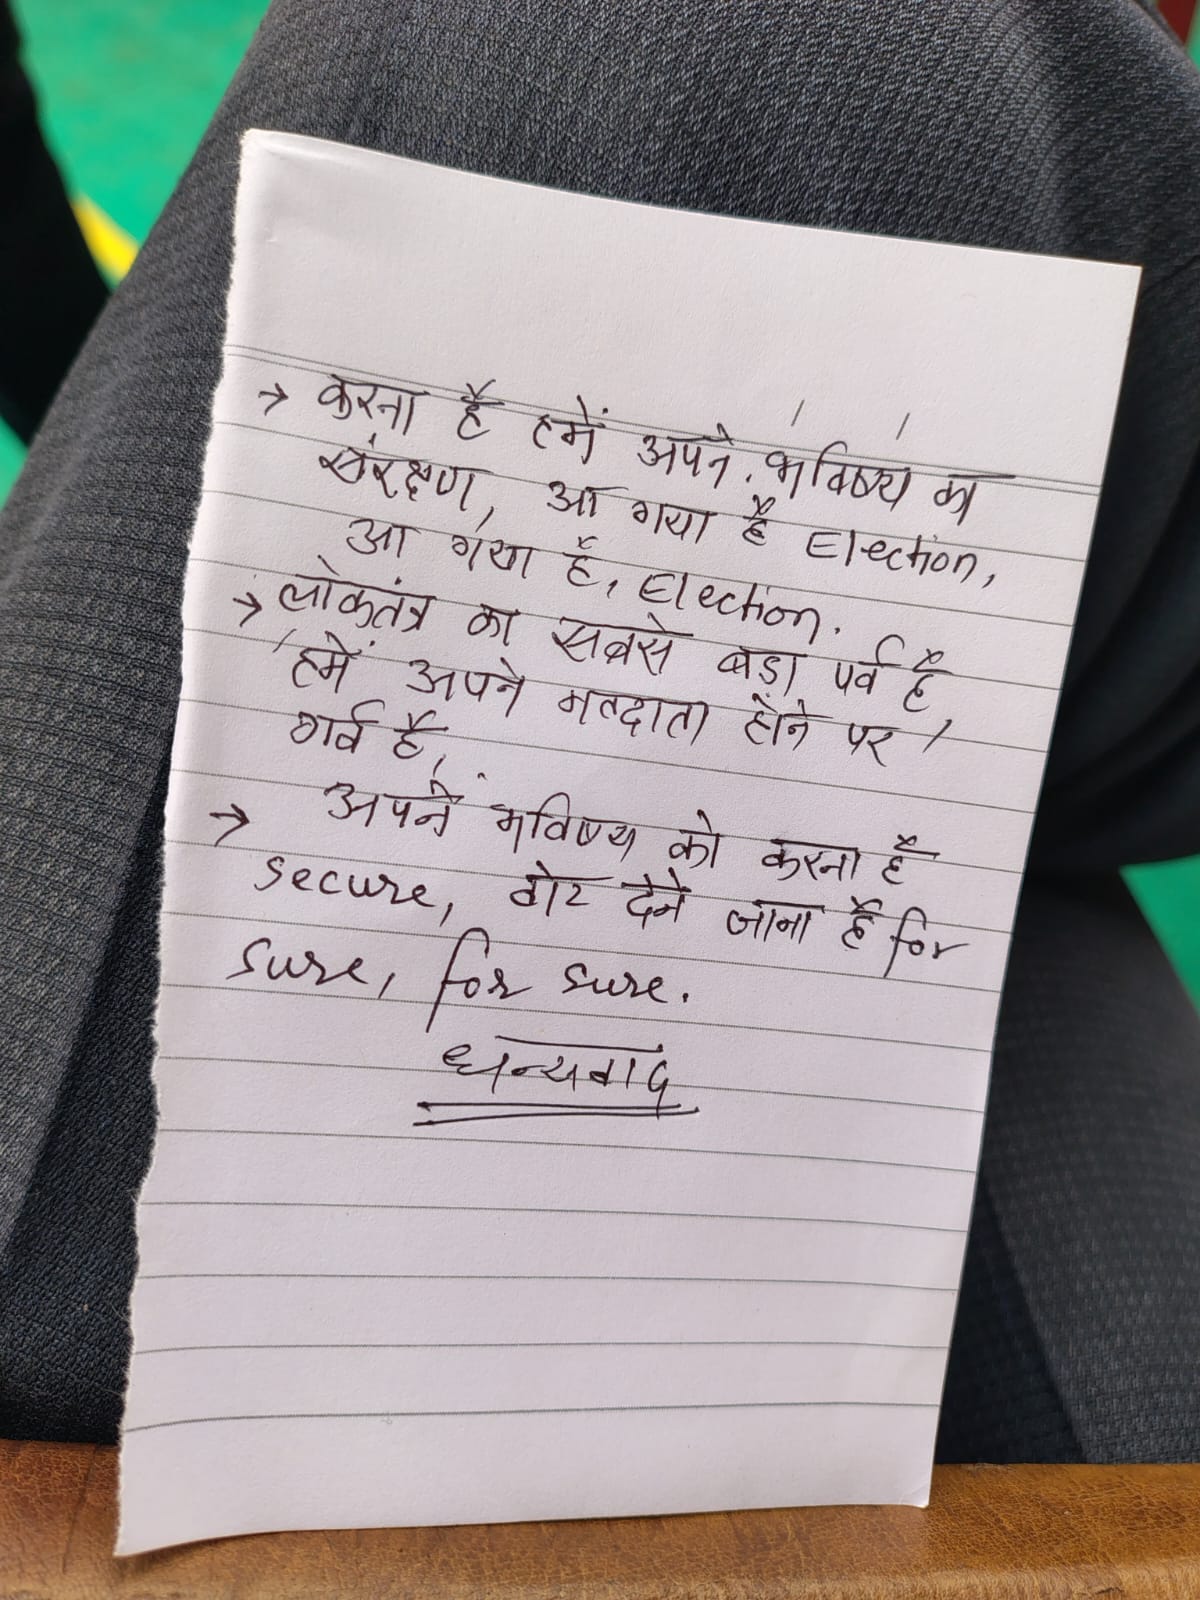 → करना है हमें अपने भविष्य का
संरक्षण, आ गया है Election,
आ गया है, Election.
→ लोकतंत्र का सबसे बड़ा पर्व है,
हमें अपने मतदाता होने पर
गर्व है,
→ अपने भविष्य को करना है
secure, वोट देने जाना है for
sure, for sure.
धन्यवाद